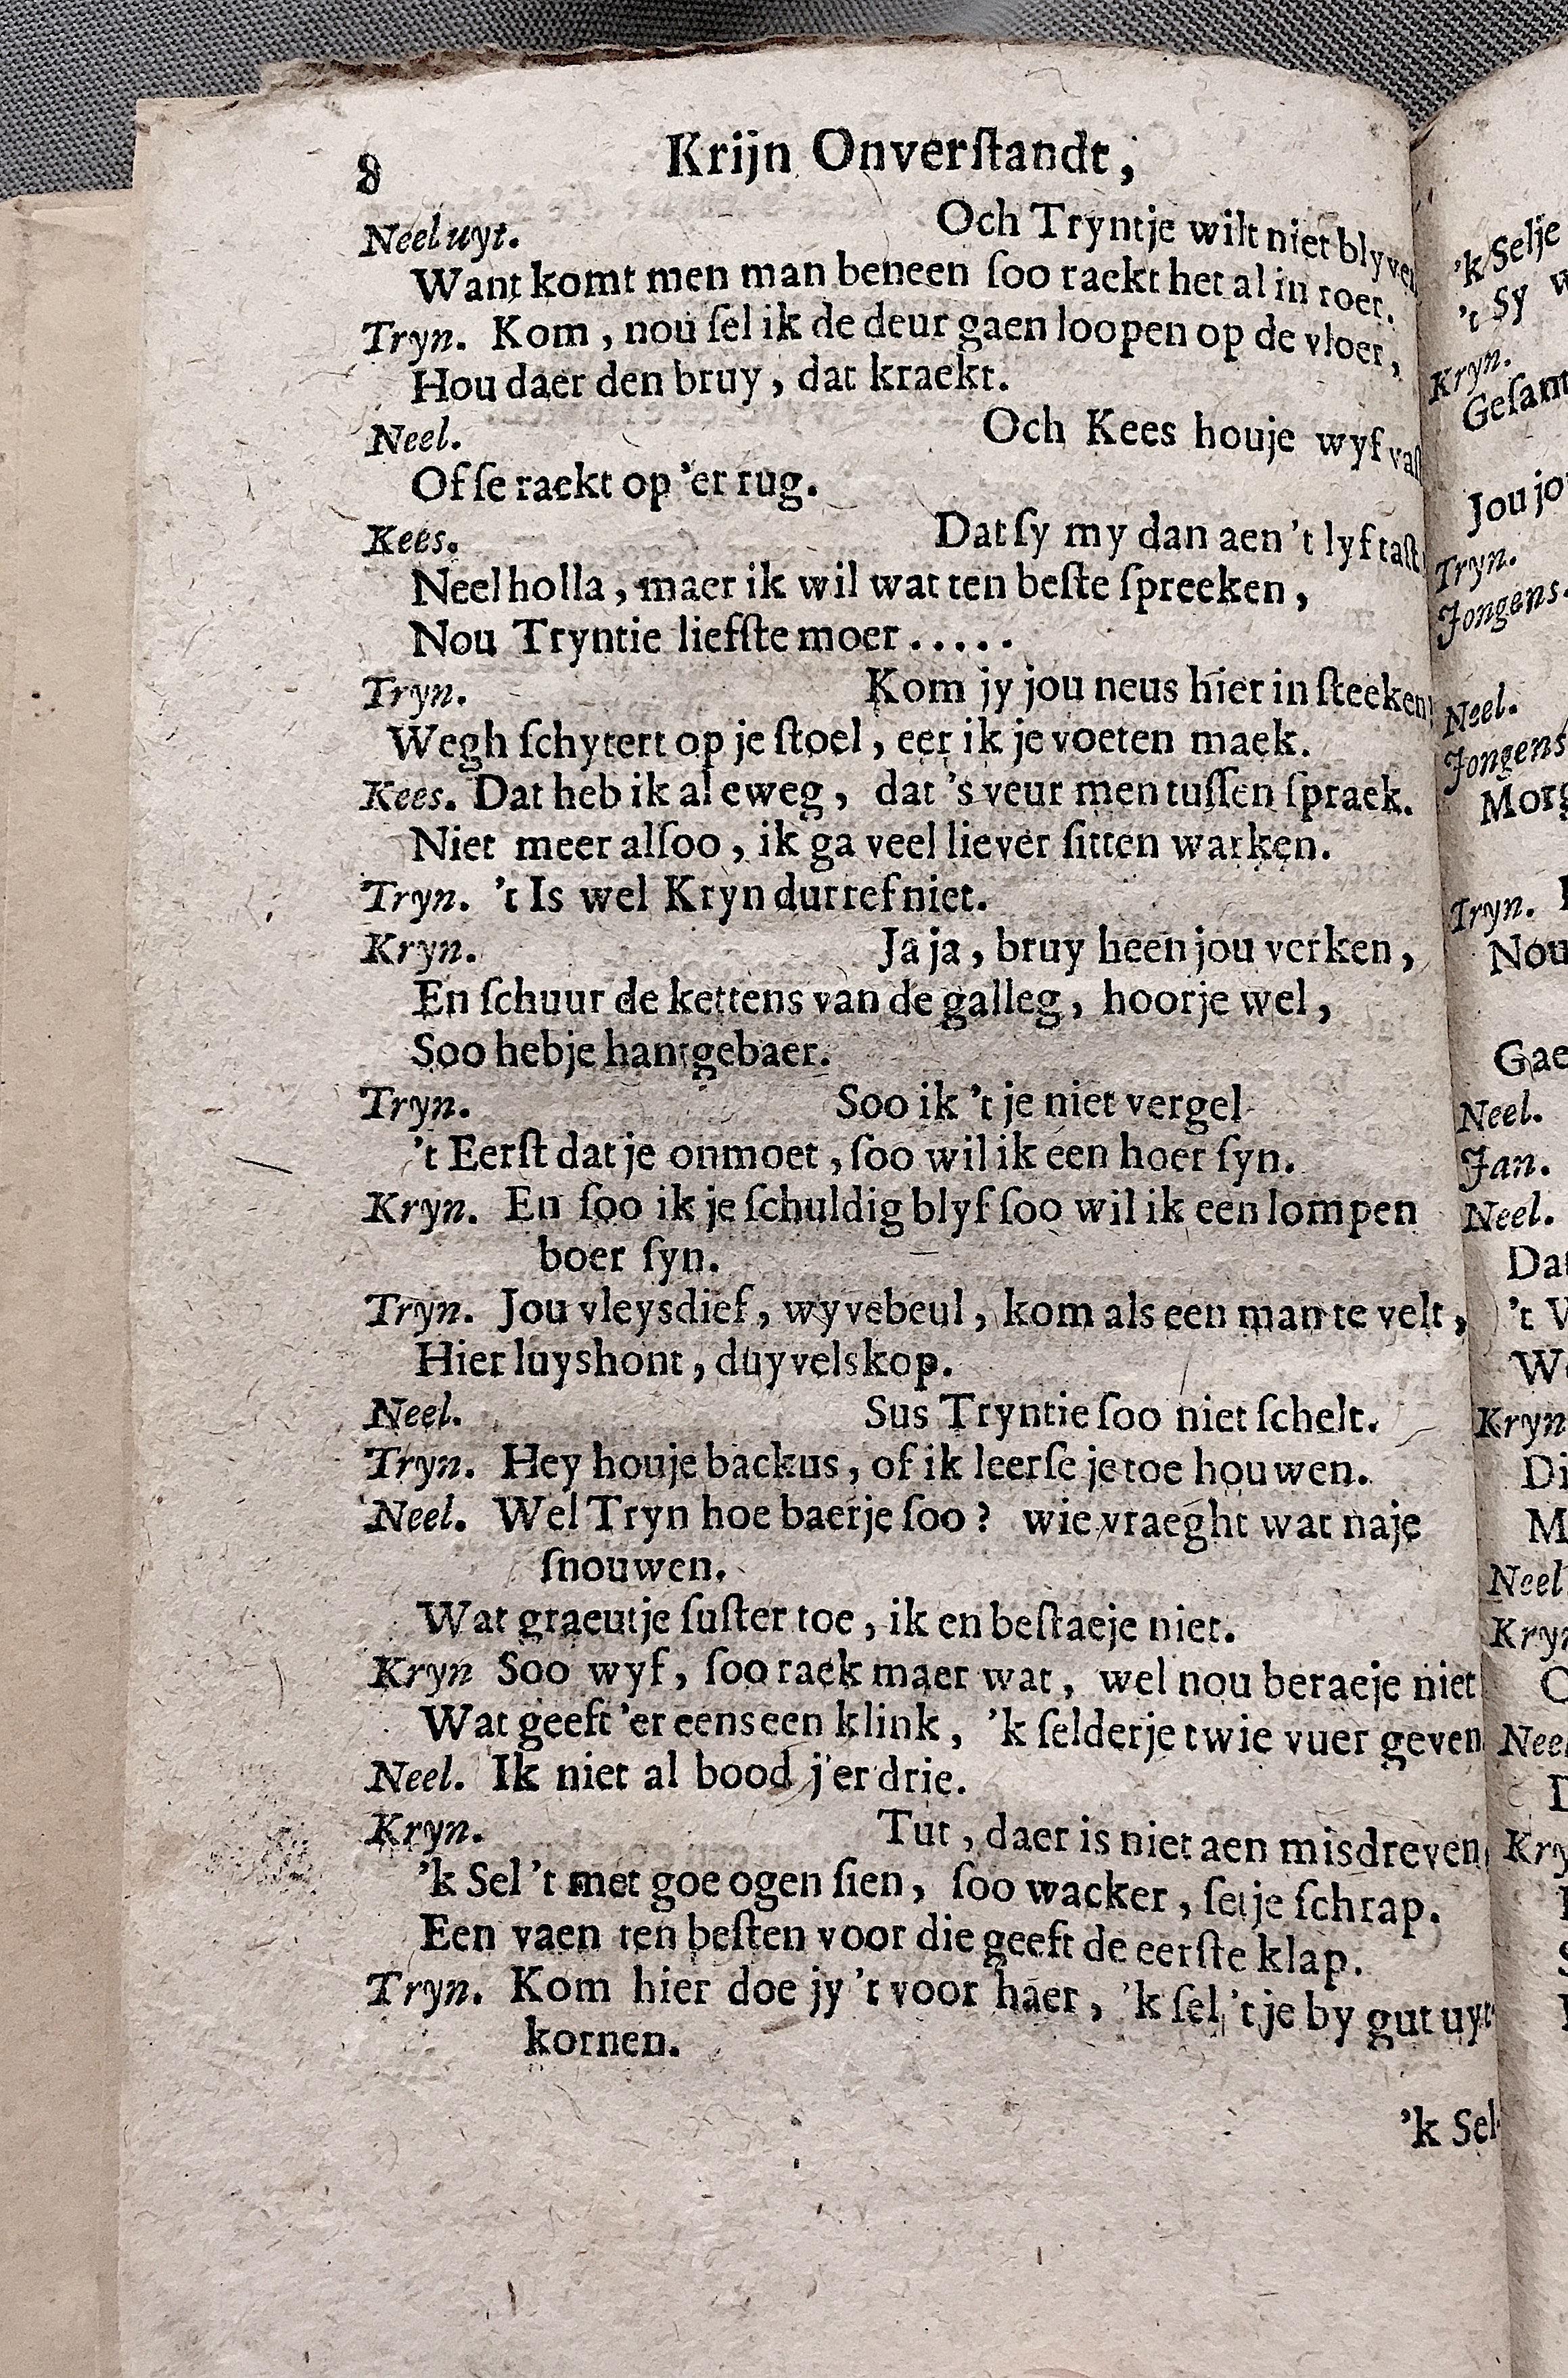 8 Krijn Onverſtandt,
Neel uyt. Och Tryntje wilt niet blyven
Want komt men man beneen ſoo raekt het al in roer.
Tryn. Kom, nou ſel ik de deur gaen loopen op de vloer,
Hou daer den bruy, dat kraekt.
Neel. Och Kees houje wyf vaſt
Of ſe raekt op 'er rug.
Kees. Dat ſy my dan aen 't lyf taſt
Neel holla, maer ik wil wat ten beſte ſpreeken,
Nou Tryntie liefſte moer.....
Tryn. Kom jy jou neus hier in ſteeken,
Wegh ſchytert op je ſtoel, eer ik je voeten maek.
Kees. Dat heb ik al eweg, dat 's veur men tuſſen ſpraek.
Niet meer alſoo, ik ga veel liever ſitten warken.
Tryn. 't Is wel Kryn durref niet.
Kryn. Ja ja, bruy heen jou verken,
En ſchuur de kettens van de galleg, hoorje wel,
Soo hebje hantgebaer.
Tryn. Soo ik 't je niet vergel
't Eerſt dat je onmoet, ſoo wil ik een hoer ſyn.
Kryn. En ſoo ik je ſchuldig blyf ſoo wil ik een lompen
boer ſyn.
Tryn. Jou vleysdief, wyvebeul, kom als een man te velt,
Hier luyshont, duyvelskop.
Neel. Sus Tryntie ſoo niet ſchelt.
Tryn. Hey houje backus, of ik leerſe je toe houwen.
Neel. Wel Tryn hoe baerje ſoo? wie vraeght wat naje
ſnouwen.
Wat graeutje ſuſter toe, ik en beſtaeje niet.
Kryn Soo wyf, ſoo raek maer wat, wel nou beraeje niet
Wat geeft 'er eens een klink, 'k ſelderje twie vuer geven
Neel. Ik niet al bood j'er drie.
Kryn. Tut, daer is niet aen misdreven
'k Sel 't met goe ogen ſien, ſoo wacker, ſetje ſchrap.
Een vaen ten beſten voor die geeft de eerſte klap.
Tryn. Kom hier doe jy 't voor haer, 'k ſel 't je by gut uyt
kornen.
'k Sel
'k Selje
't Sy
Kryn.
Jou
Tryn.
Jongens.
Neel.
Jongens
Tryn.
Nou
Neel.
Jan.
Neel.
't
Kryn
Neel